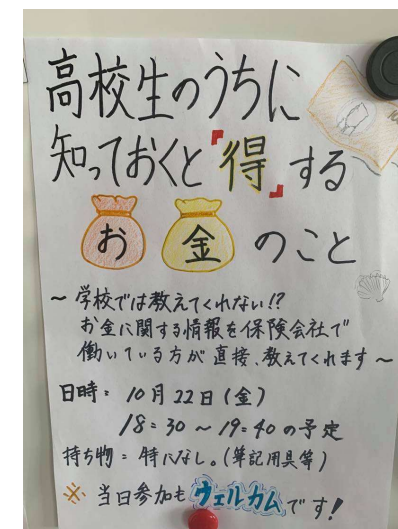 高校生のうちに
知っておくと「得」する
お金のこと
～学校では教えてくれない!?
お金に関する情報を保険会社で
働いている方が直接、教えてくれます～
日時：10月22日(金)
18:30～19:40の予定
持ち物：特になし。(筆記用具等)
※当日参加もウェルカムです!